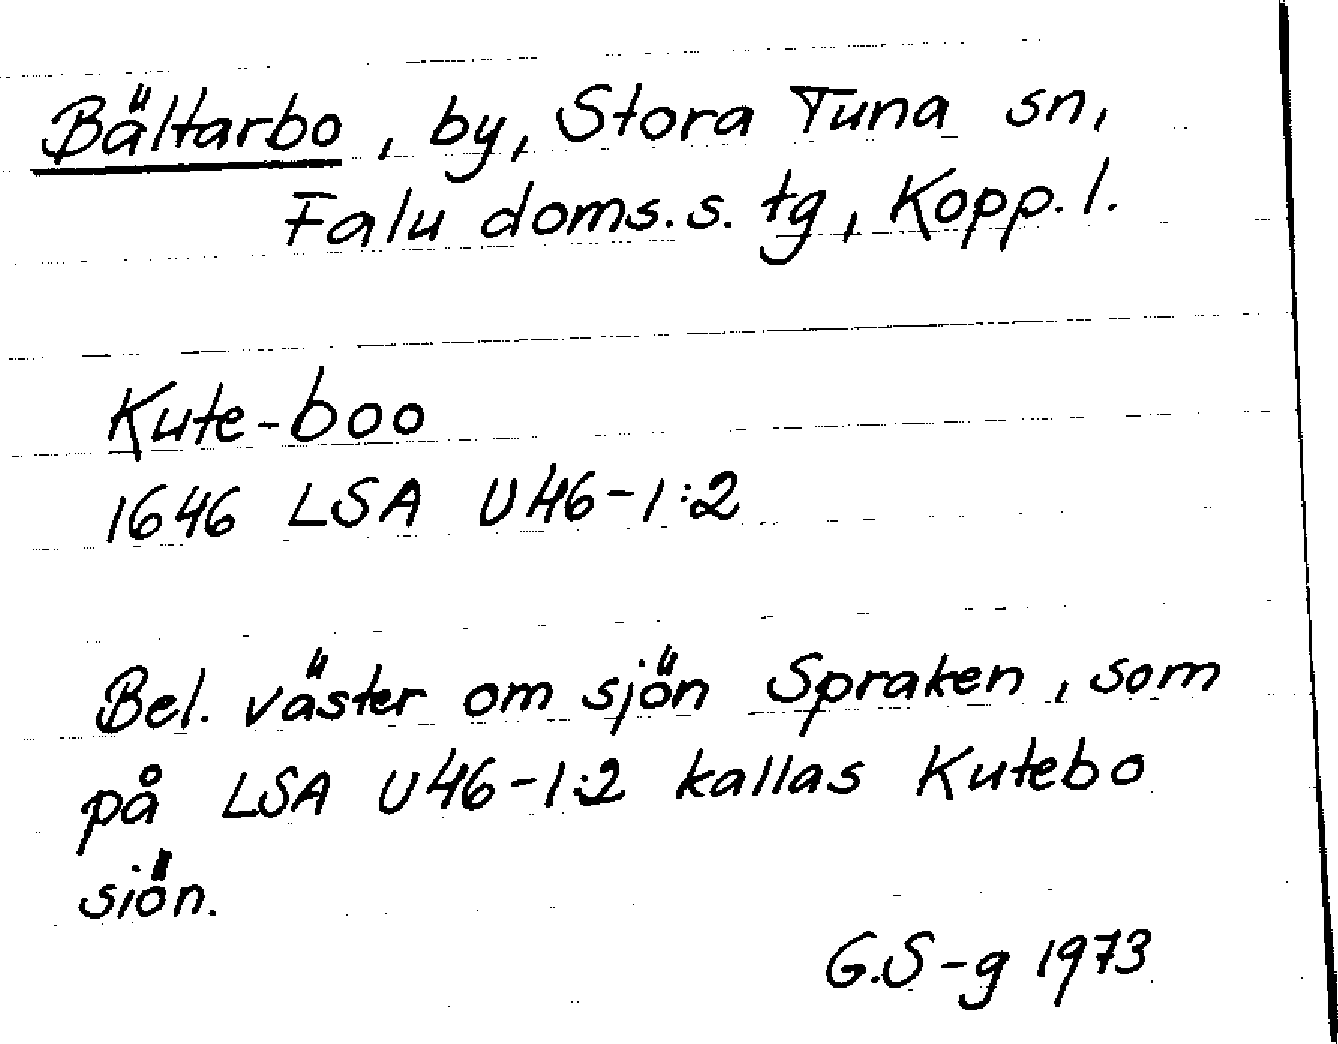 Bältarbo, by, Stora Tuna sn,
Falu doms.s. tg, Kopp.l.
Kute-boo
1646 LSA U46-1:2
Bel. väster om sjön Spraken, som
på LSA U46-1:2 kallas Kutebo
siön.
G.S-g 1973